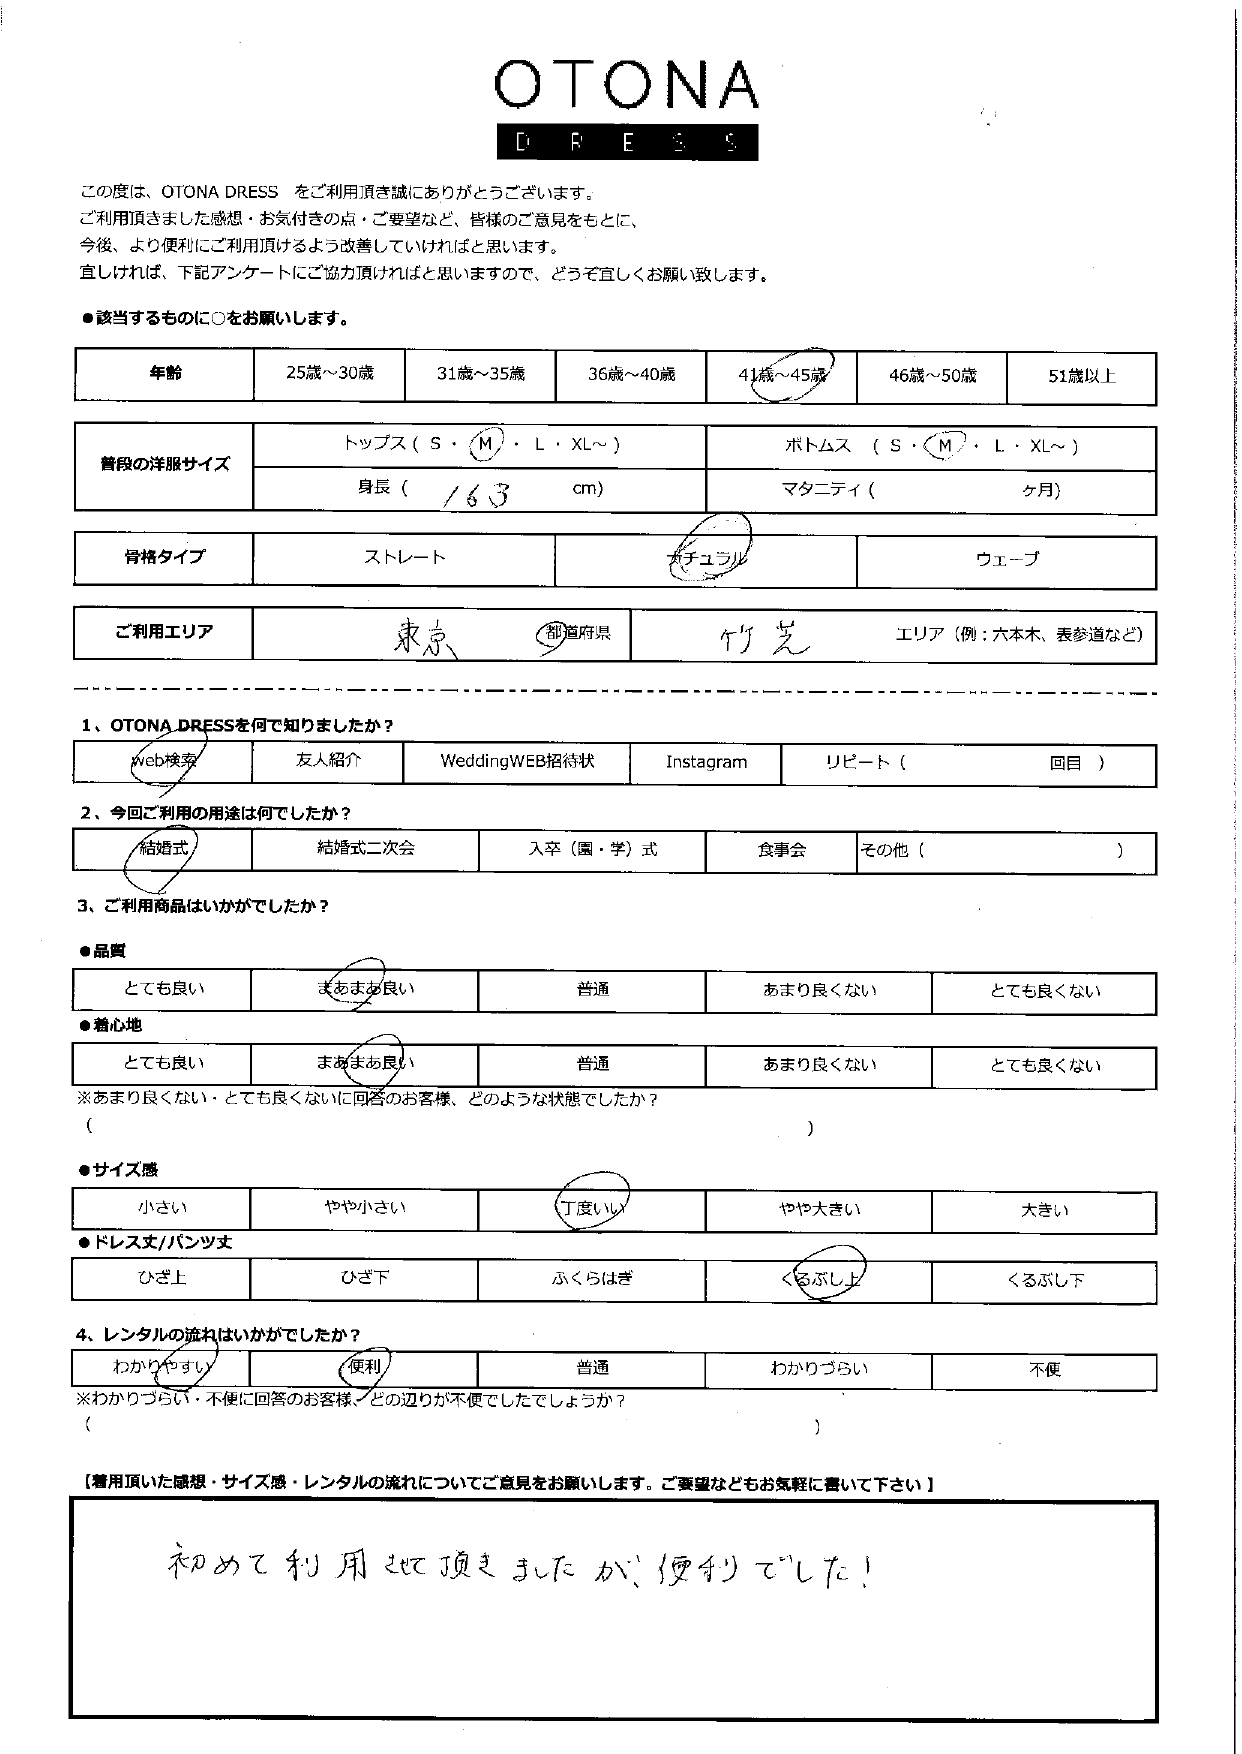 OTONA
DRESS
この度は、OTONA DRESS　をご利用頂き誠にありがとうございます。
ご利用頂きました感想・お気付きの点・ご要望など、皆様のご意見をもとに、
今後、より便利にご利用頂けるよう改善していければと思います。
宜しければ、下記アンケートにご協力頂ければと思いますので、どうぞ宜しくお願い致します。
●該当するものに○をお願いします。
年齢 25歳～30歳 31歳～35歳 36歳～40歳 41歳～45歳 46歳～50歳 51歳以上
普段の洋服サイズ トップス ( S ・ M ・ L ・ XL～ ) ボトムス ( S ・ M ・ L ・ XL～ )
身長 ( 163 cm) マタニティ ( ケ月)
骨格タイプ ストレート ナチュラル ウェーブ
ご利用エリア 東京 都道府県 竹芝 エリア（例：六本木、表参道など）
1、OTONA DRESSを何で知りましたか？
web検索 友人紹介 WeddingWEB招待状 Instagram リピート ( 回目 )
2、今回ご利用の用途は何でしたか？
結婚式 結婚式二次会 入卒（園・学）式 食事会 その他 ( )
3、ご利用商品はいかがでしたか？
●品質
とても良い まあまあ良い 普通 あまり良くない とても良くない
●着心地
とても良い まあまあ良い 普通 あまり良くない とても良くない
※あまり良くない・とても良くないに回答のお客様、どのような状態でしたか？
( )
●サイズ感
小さい やや小さい 丁度いい やや大きい 大きい
●ドレス丈/パンツ丈
ひざ上 ひざ下 ふくらはぎ くるぶし上 くるぶし下
4、レンタルの流れはいかがでしたか？
わかりやすい 便利 普通 わかりづらい 不便
※わかりづらい・不便に回答のお客様、どの辺りが不便でしたでしょうか？
( )
【着用頂いた感想・サイズ感・レンタルの流れについてご意見をお願いします。ご要望などもお気軽に書いて下さい】
初めて利用させて頂きましたが、便利でした！